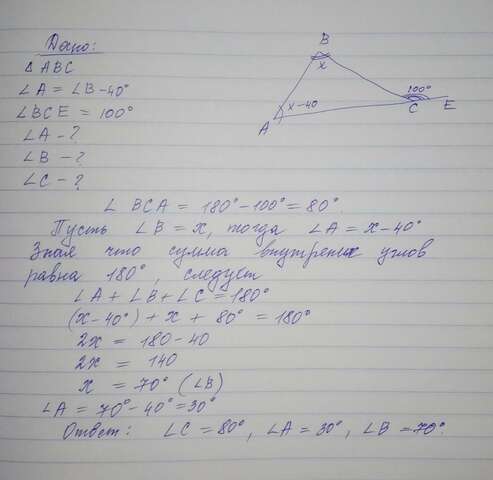 Дано:
△ABC
∠A = ∠B-40°
∠BCE = 100°
∠A - ?
∠B - ?
∠C - ?
B
x
x-40
A
100°
C
E
∠BCA = 180°-100°=80°
Пусть ∠B = x, тогда ∠A = x-40°
Зная что сумма внутрених углов
равна 180°, следует
∠A+∠B+∠C=180°
(x-40°)+x+80°=180°
2x = 180-40
2x = 140
x = 70° (∠B)
∠A = 70°-40°=30°
Ответ: ∠C=80°, ∠A=30°, ∠B=70°.